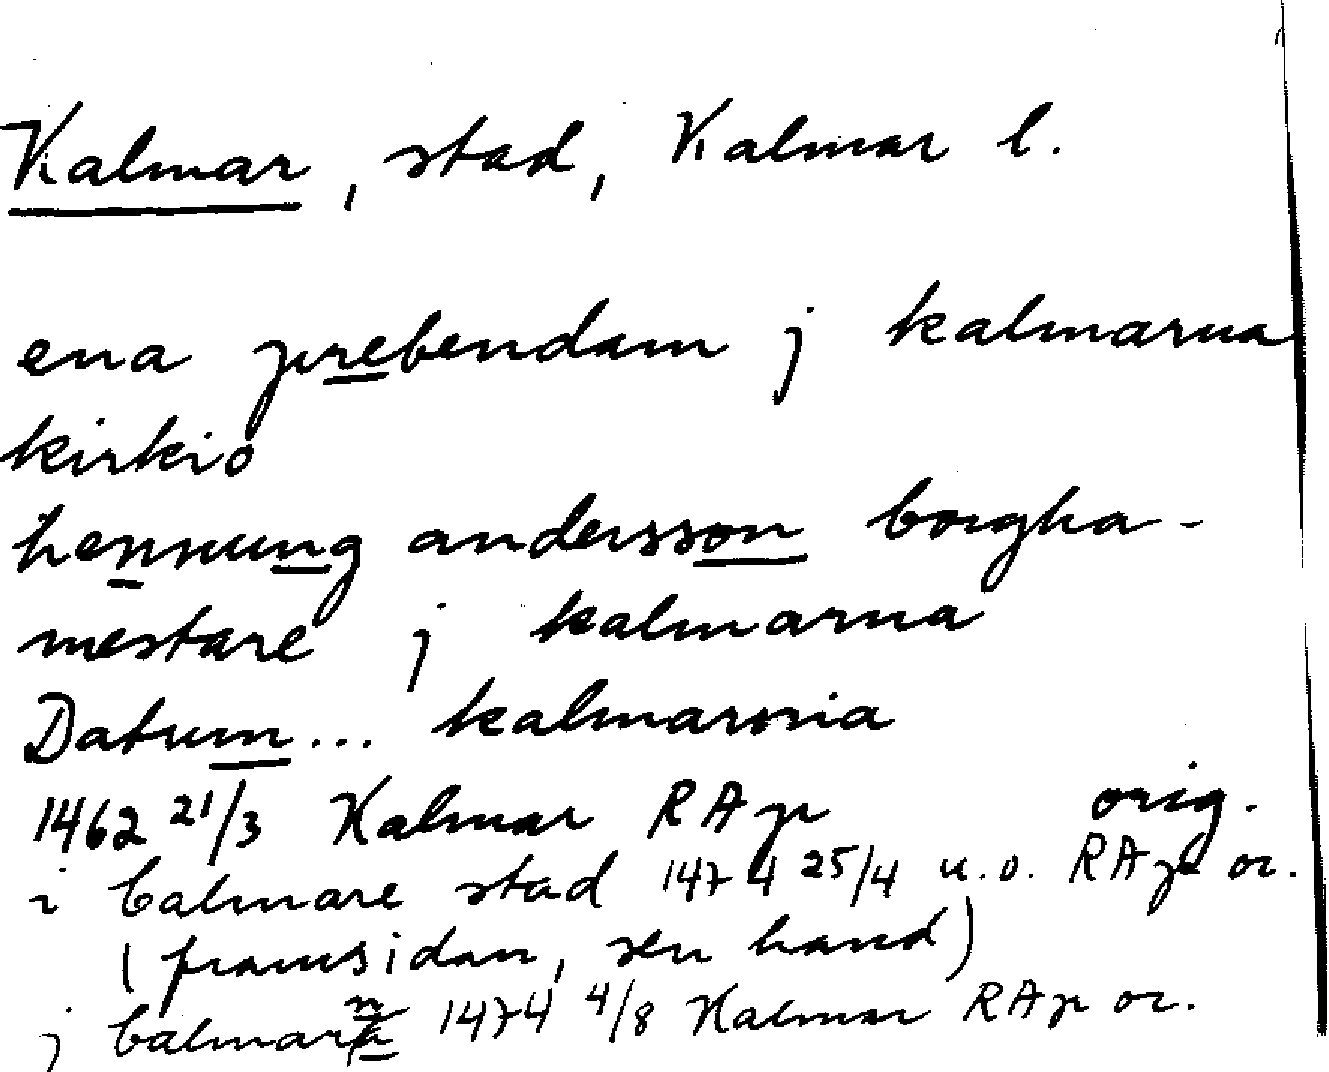 Kalmar, stad, Kalmar l.
ena prebendam j kalmarna
kirkio
hennung andersson borgha-
mestare j kalmarna
Datum... kalmarnia
1462 21/3 Kalmar RAp orig.
i Calmare stad 1474 25/4 u.o. RAp or.
(framsidan, sen hand)
j Calmarn 1474 4/8 Kalmar RAp or.